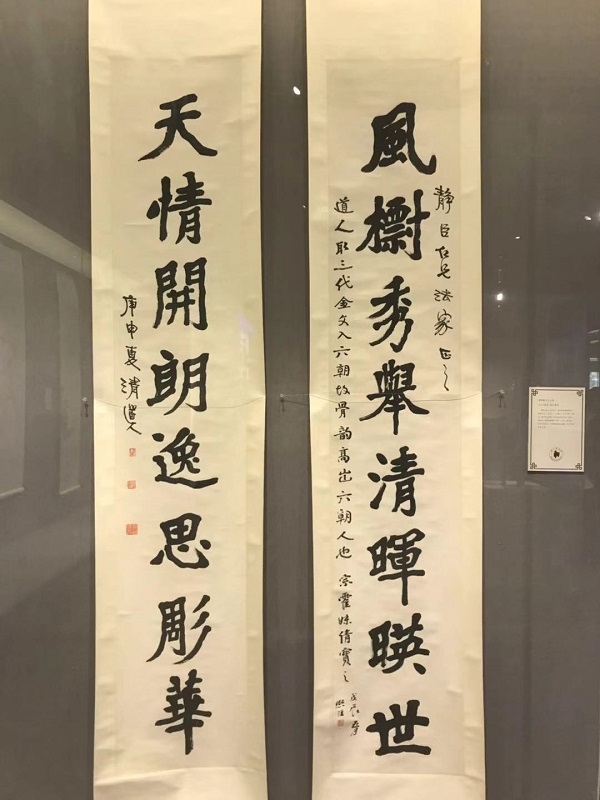 靜臣仁兄法家正之
風檦秀舉清暉暎世
道人取三代金文入六朝故骨韵高出六朝人也
寶之
天情開朗逸思彫華
庚申夏清道人